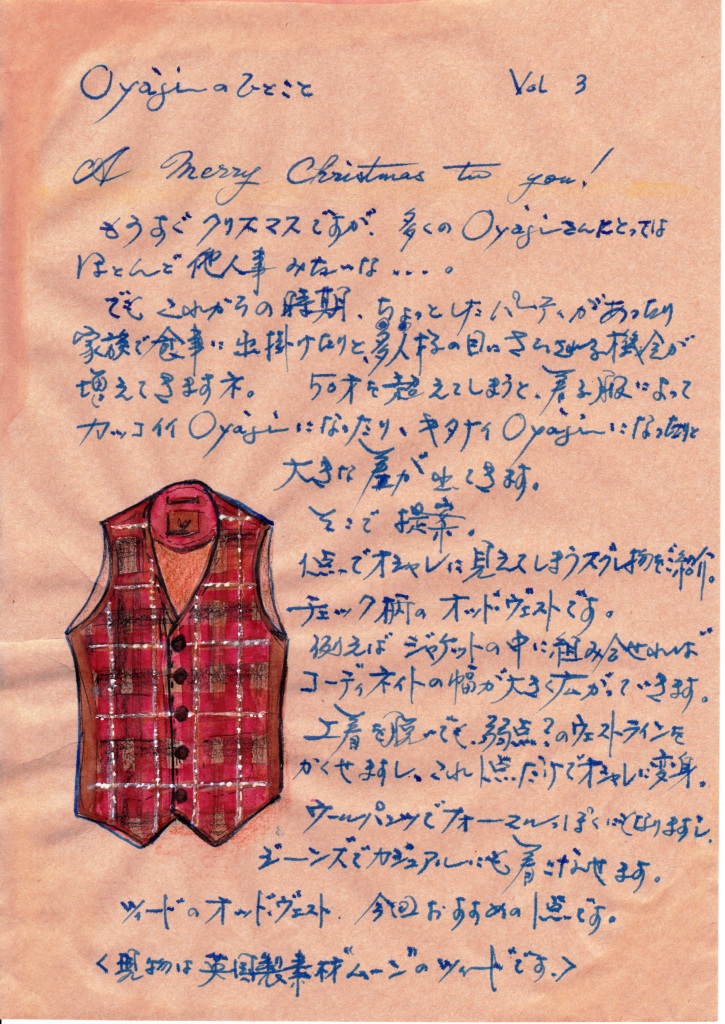 Oyajiのひとこと Vol 3
A Merry Christmas to you!
もうすぐクリスマスですが、多くのOyajiさんにとっては
ほとんど他人事みたいな....。
でもこれからの時期、ちょっとしたパーティがあったり
家族で食事に出掛けたりと、多人様の目にさらされる機会が
増えてきますネ。 50才を超えてしまうと、着る服によって
カッコイイOyajiになったり、キタナイOyajiになったりと
大きな差が出てきます。
そこで提案。
1点でオシャレに見えてしまうスグレ物を紹介。
チェック柄のオッド・ヴェストです。
例えばジャケットの中に組み合せれば
コーディネイトの幅が大きく広がってきます。
上着を脱いでも、弱点?のウェストラインを
かくせますし、これ1点だけでオシャレに変身。
ウールパンツでフォーマルっぽくにもなりますし、
ジーンズでカジュアルにも着こなせます。
ツィードのオッド・ヴェスト、今回おすすめの1点です。
<現物は英国製素材"ムーン"のツィードです。>